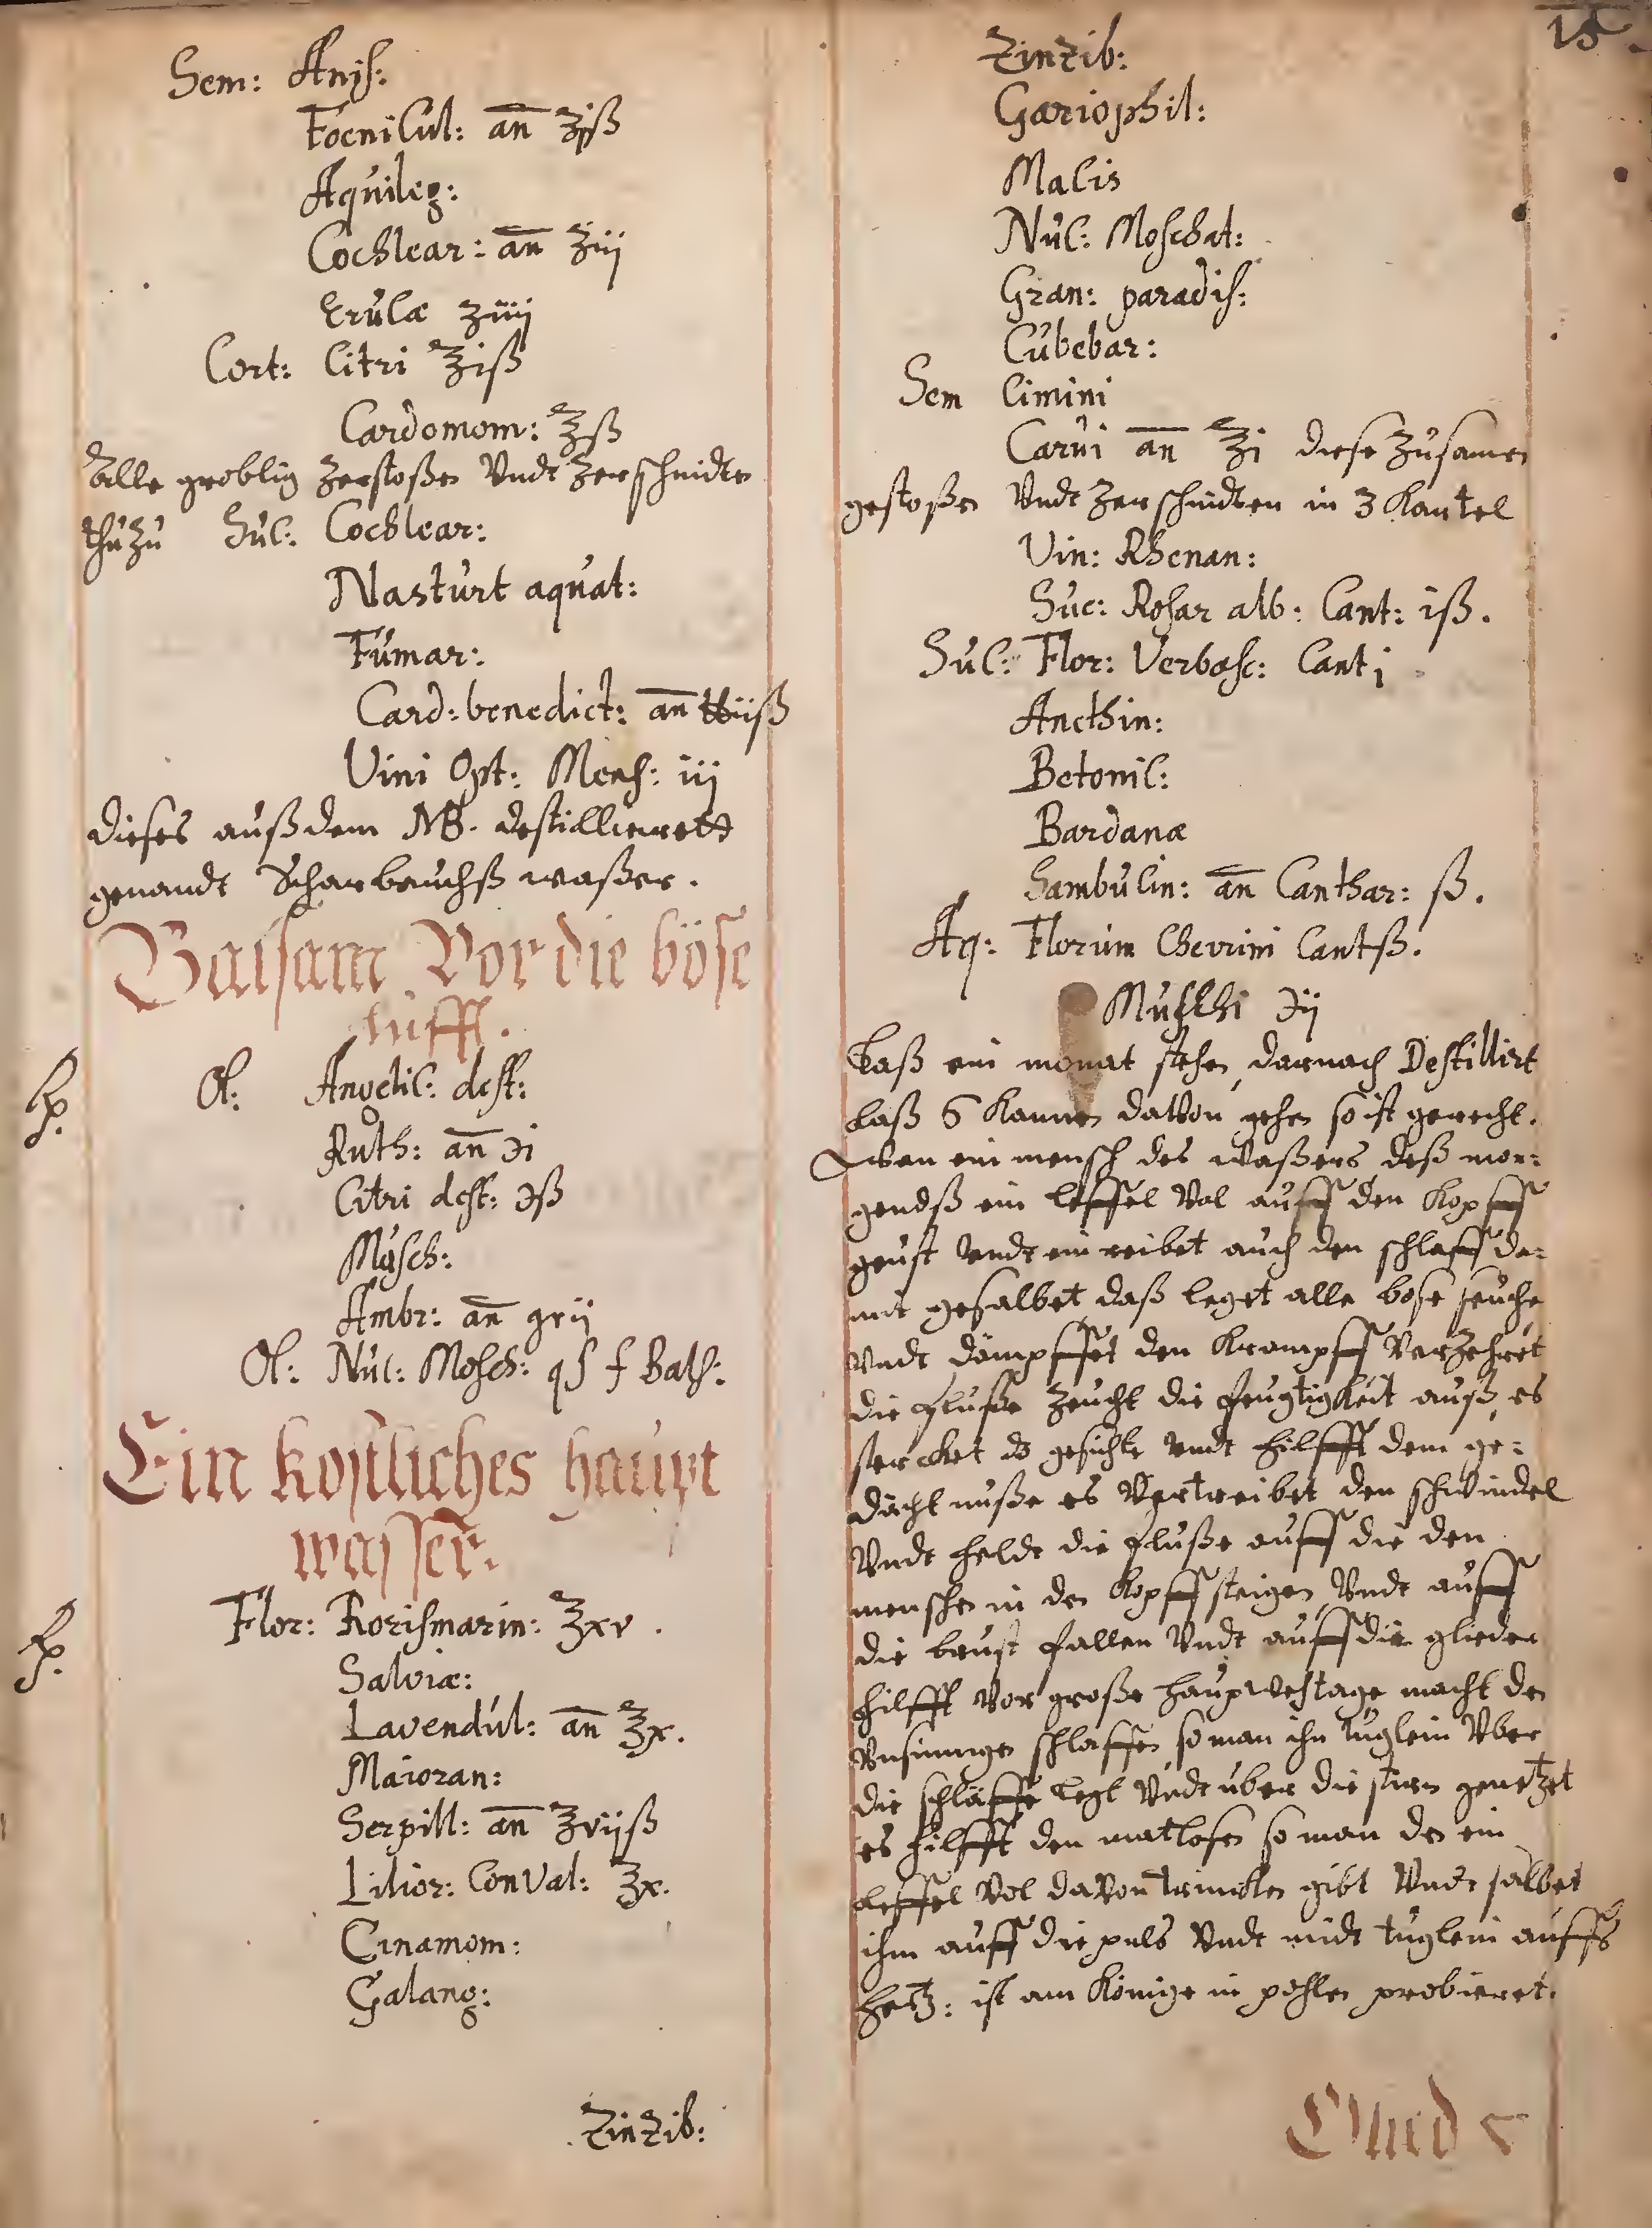 Sem: Anis:
Foenicul: an ʒjß
Aquileg:
Cochlear: an ʒiij
Erucae ʒiiij
Cort: Citri ℥iß
Cardomom: ℥ß
Alle groblig zerstoßen Undt zerschnidten
thu zu Suc: Cochlear:
Nasturt aquat:
Fumar:
Card: benedict: an ℔iiß
Vini Opt: Mens: iij
dieses auß dem MB. destillierett
genandt Scharbauchß waßer.
Balsam Vor die böse
lufft.
Rp. Ol: Angelic: dest:
Ruth: an ℈i
Citri dest: ℈ß
Mosch:
Ambr: an gr ij
Ol: Nuc: Mosch: qs f Bals:
Ein kostliches haupt
wasser.
Rp. Flor: Rorismarin: ℥xv.
Salviæ:
Lavendul: an ℥x.
Maioran:
Serpill: an ℥vijß
Lilior: ConVal: ℥x.
Cinamom:
Galang:
Zinzib:
15
Zinzib:
Gariophil:
Macis
Nuc: Moschat:
Gran: paradis:
Cubebar:
Sem Cimini
Carui an ℥i diese zusamen
gestoßen Undt zerschnidten in 3 Kantel
Vin: Rhenan:
Suc: Rosar alb: Cant: iß.
Suc: Flor: Verbasc: Cant i
Anethin:
Betonic:
Bardanæ
Sambucin: an Canthar: ß.
Aq: Florum Cheirini Cantß.
Muschi ℈ij
Laß ein monat stehen, darnach Destillirt
laß 6 Kannen davon gehen so ist gerecht.
wan ein mensch des waßers deß mor:
gendß ein leffel vol auff den Kopff
geust Undt ein reibet auch den schlaff da:
mit gesalbet daß leget alle böse seuche
Undt dämpffet den Krampff Verzehret
die fluße zeucht die feugtigkeit auß, es
stercket ds gesichte Undt hilfft dem ge:
dächtnuße es Vertreibet den schwindel
Undt heldt die fluße auff die den
menschen in den Kopff steigen Undt auff
die brust fallen Undt auff die glieder
hilfft vor große haupwehtage macht den
Unsinnigen schlaffen so man ihn tuglein Uber
die schläffe legt Undt über die stirn genetzet
es hilfft den matlosen so man den ein
leffel vol davon trincken gibt Undt salbet
ihm auff die puls Undt midt tuglein auffs
hertz: ist am Könige in pohlen probieret.